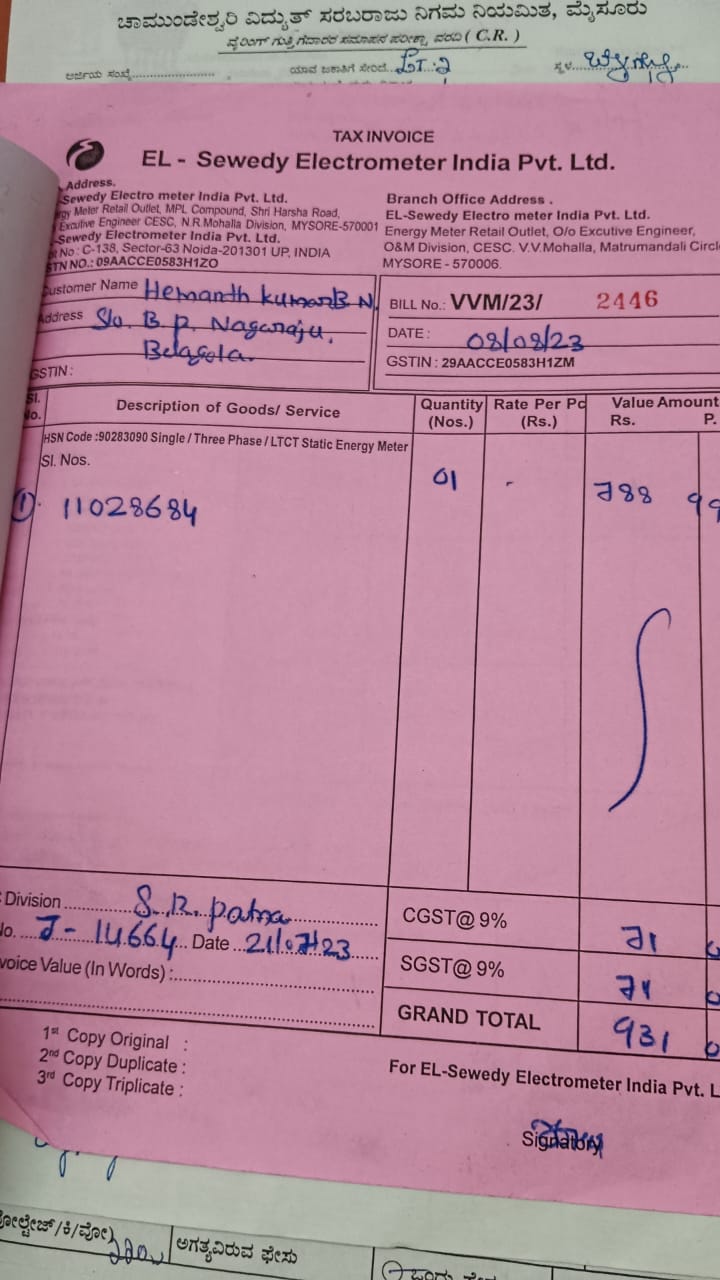 ಚಾಮುಂಡೇಶ್ವರಿ ವಿದ್ಯುತ್ ಸರಬರಾಜು ನಿಗಮ ನಿಯಮಿತ, ಮೈಸೂರು
ವೈರಿಂಗ್ ಗುತ್ತಿಗೆದಾರರ ಸಮಾಪನ ಪರೀಕ್ಷಾ ವರದಿ ( C.R. )
ಅರ್ಜಿಯ ಸಂಖ್ಯೆ.................... ಯಾವ ಜಕಾತಿಗೆ ಸೇರಿದೆ...LT-2 ಸ್ಥಳ
TAX INVOICE
EL - Sewedy Electrometer India Pvt. Ltd.
Address.
Sewedy Electro meter India Pvt. Ltd.
rgy Meter Retail Outlet, MPL Compound, Shri Harsha Road,
Excutive Engineer CESC, N.R.Mohalla Division, MYSORE-570001
Sewedy Electrometer India Pvt. Ltd.
No : C-138, Sector-63 Noida-201301 UP, INDIA
STN NO.: 09AACCE0583H1ZO
Branch Office Address .
EL-Sewedy Electro meter India Pvt. Ltd.
Energy Meter Retail Outlet, O/o Excutive Engineer,
O&M Division, CESC. V.V.Mohalla, Matrumandali Circl
MYSORE - 570006.
Customer Name Hemanth kumar B N.
Address S/o. B. P. Nagaraju,
Belagola.
GSTIN :
BILL No.: VVM/23/ 2446
DATE : 08/08/23
GSTIN : 29AACCE0583H1ZM
Sl. No. Description of Goods/ Service Quantity (Nos.) Rate Per Pc (Rs.) Value Amount Rs. P.
HSN Code :90283090 Single / Three Phase / LTCT Static Energy Meter
Sl. Nos.
① 11028684 01 - 788 99
Division S.R. Patna
No. J-14664 Date 21/07/23
voice Value (In Words) :
CGST@ 9% 71 0
SGST@ 9% 71 0
GRAND TOTAL 931 0
1st Copy Original :
2nd Copy Duplicate :
3rd Copy Triplicate :
For EL-Sewedy Electrometer India Pvt. L
Signatory
ೋಲ್ಟೇಜ್/ಕಿ/ವೋ)
ಅಗತ್ಯವಿರುವ ಫೇಸು